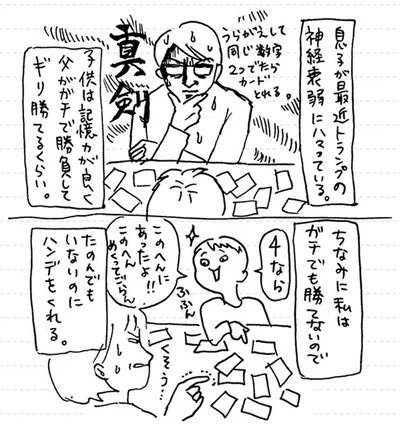 息子が最近トランプの
神経衰弱にハマっている。
うらがえして
同じ数字
2つでたら
カード
とれる。
真剣
子供は記憶力が良く
父がガチで勝負して
ギリ勝てるくらい。
ちなみに私は
ガチでも勝てないので
4なら
ふふん
このへんに
あったよ!!
このへん
めくってごらん
そう…
たのんでも
いないのに
ハンデをくれる。